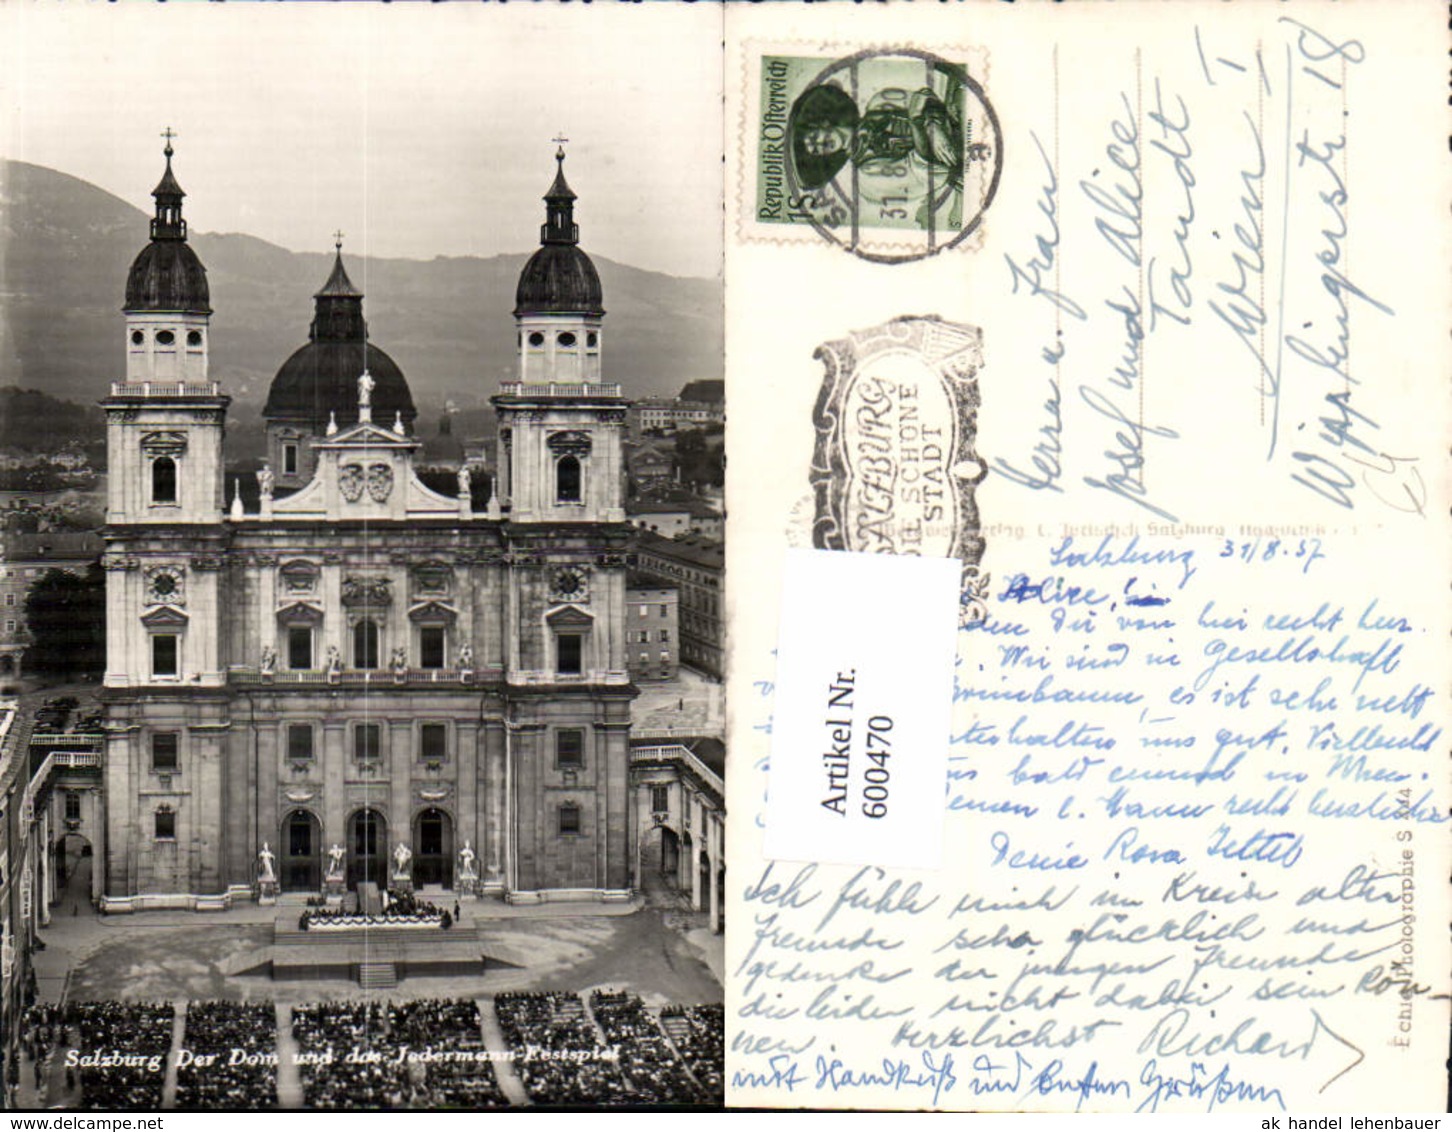 Salzburg Der Dom und das Jedermann-Festspiel
www.delcampe.net
Republik Österreich
1S
31.8
SALZBURG
DIE SCHÖNE
STADT
Herrn u. Frau
Josef und Alice
Tandt
Wien I
Wipplingerstr. 18
Salzburg 31/8.57
Dir von hier recht herz.
. Wir sind in Gesellschaft
Grünbaum, es ist sehr nett
unterhalten uns gut. Vielleicht
uns bald einmal in Wien.
Deine Rosa
Ich fühle mich im Kreise alter
Freunde sehr glücklich und
gedenke der jungen Freunde
die leider nicht dabei sein kön-
nen. Herzlichst Richard
mit Handkuß und besten Grüßen
Echte Photographie
Artikel Nr.
600470
ak handel lehenbauer